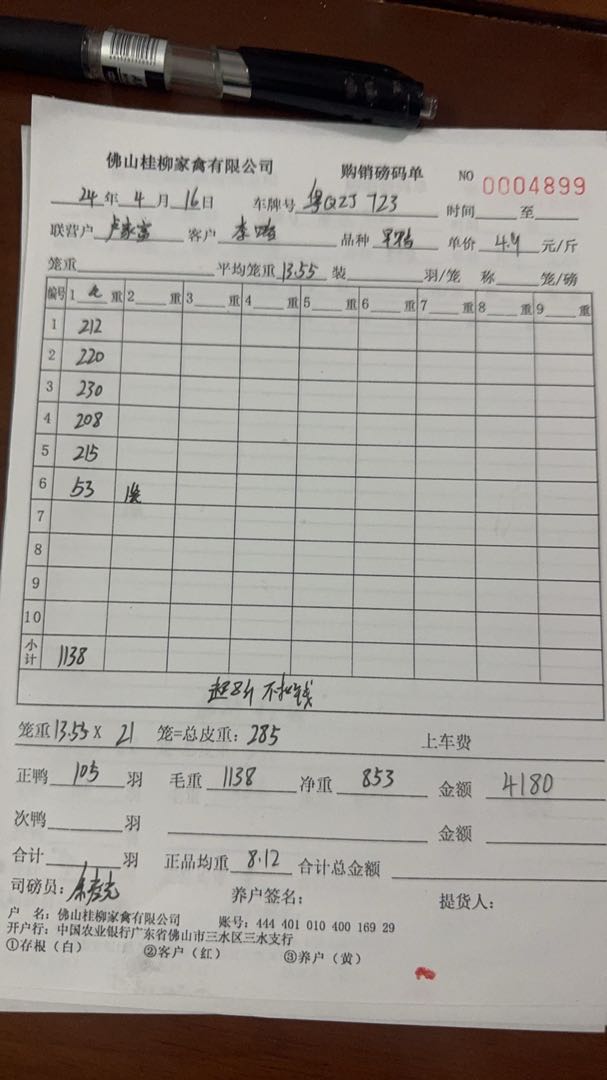 佛山桂柳家禽有限公司 购销磅码单 NO 0004899
24年 4月 16日 车牌号 粤QZJ 723 时间 至
联营户 卢家富 客户 李 品种 单价 4.9 元/斤
笼重 平均笼重 13.55 装 羽/笼 称 笼/磅
编号 1 毛 重 2 重 3 重 4 重 5 重 6 重 7 重 8 重 9 重
1 212
2 220
3 230
4 208
5 215
6 53 1笼
7
8
9
10
小计 1138
超8斤 不扣钱
笼重 13.55 X 21 笼=总皮重: 285 上车费
正鸭 105 羽 毛重 1138 净重 853 金额 4180
次鸭 羽 金额
合计 羽 正品均重 8.12 合计总金额
司磅员: 养户签名: 提货人:
户 名: 佛山桂柳家禽有限公司 账号: 444 401 010 400 169 29
开户行: 中国农业银行广东省佛山市三水区三水支行
①存根(白) ②客户(红) ③养户(黄)